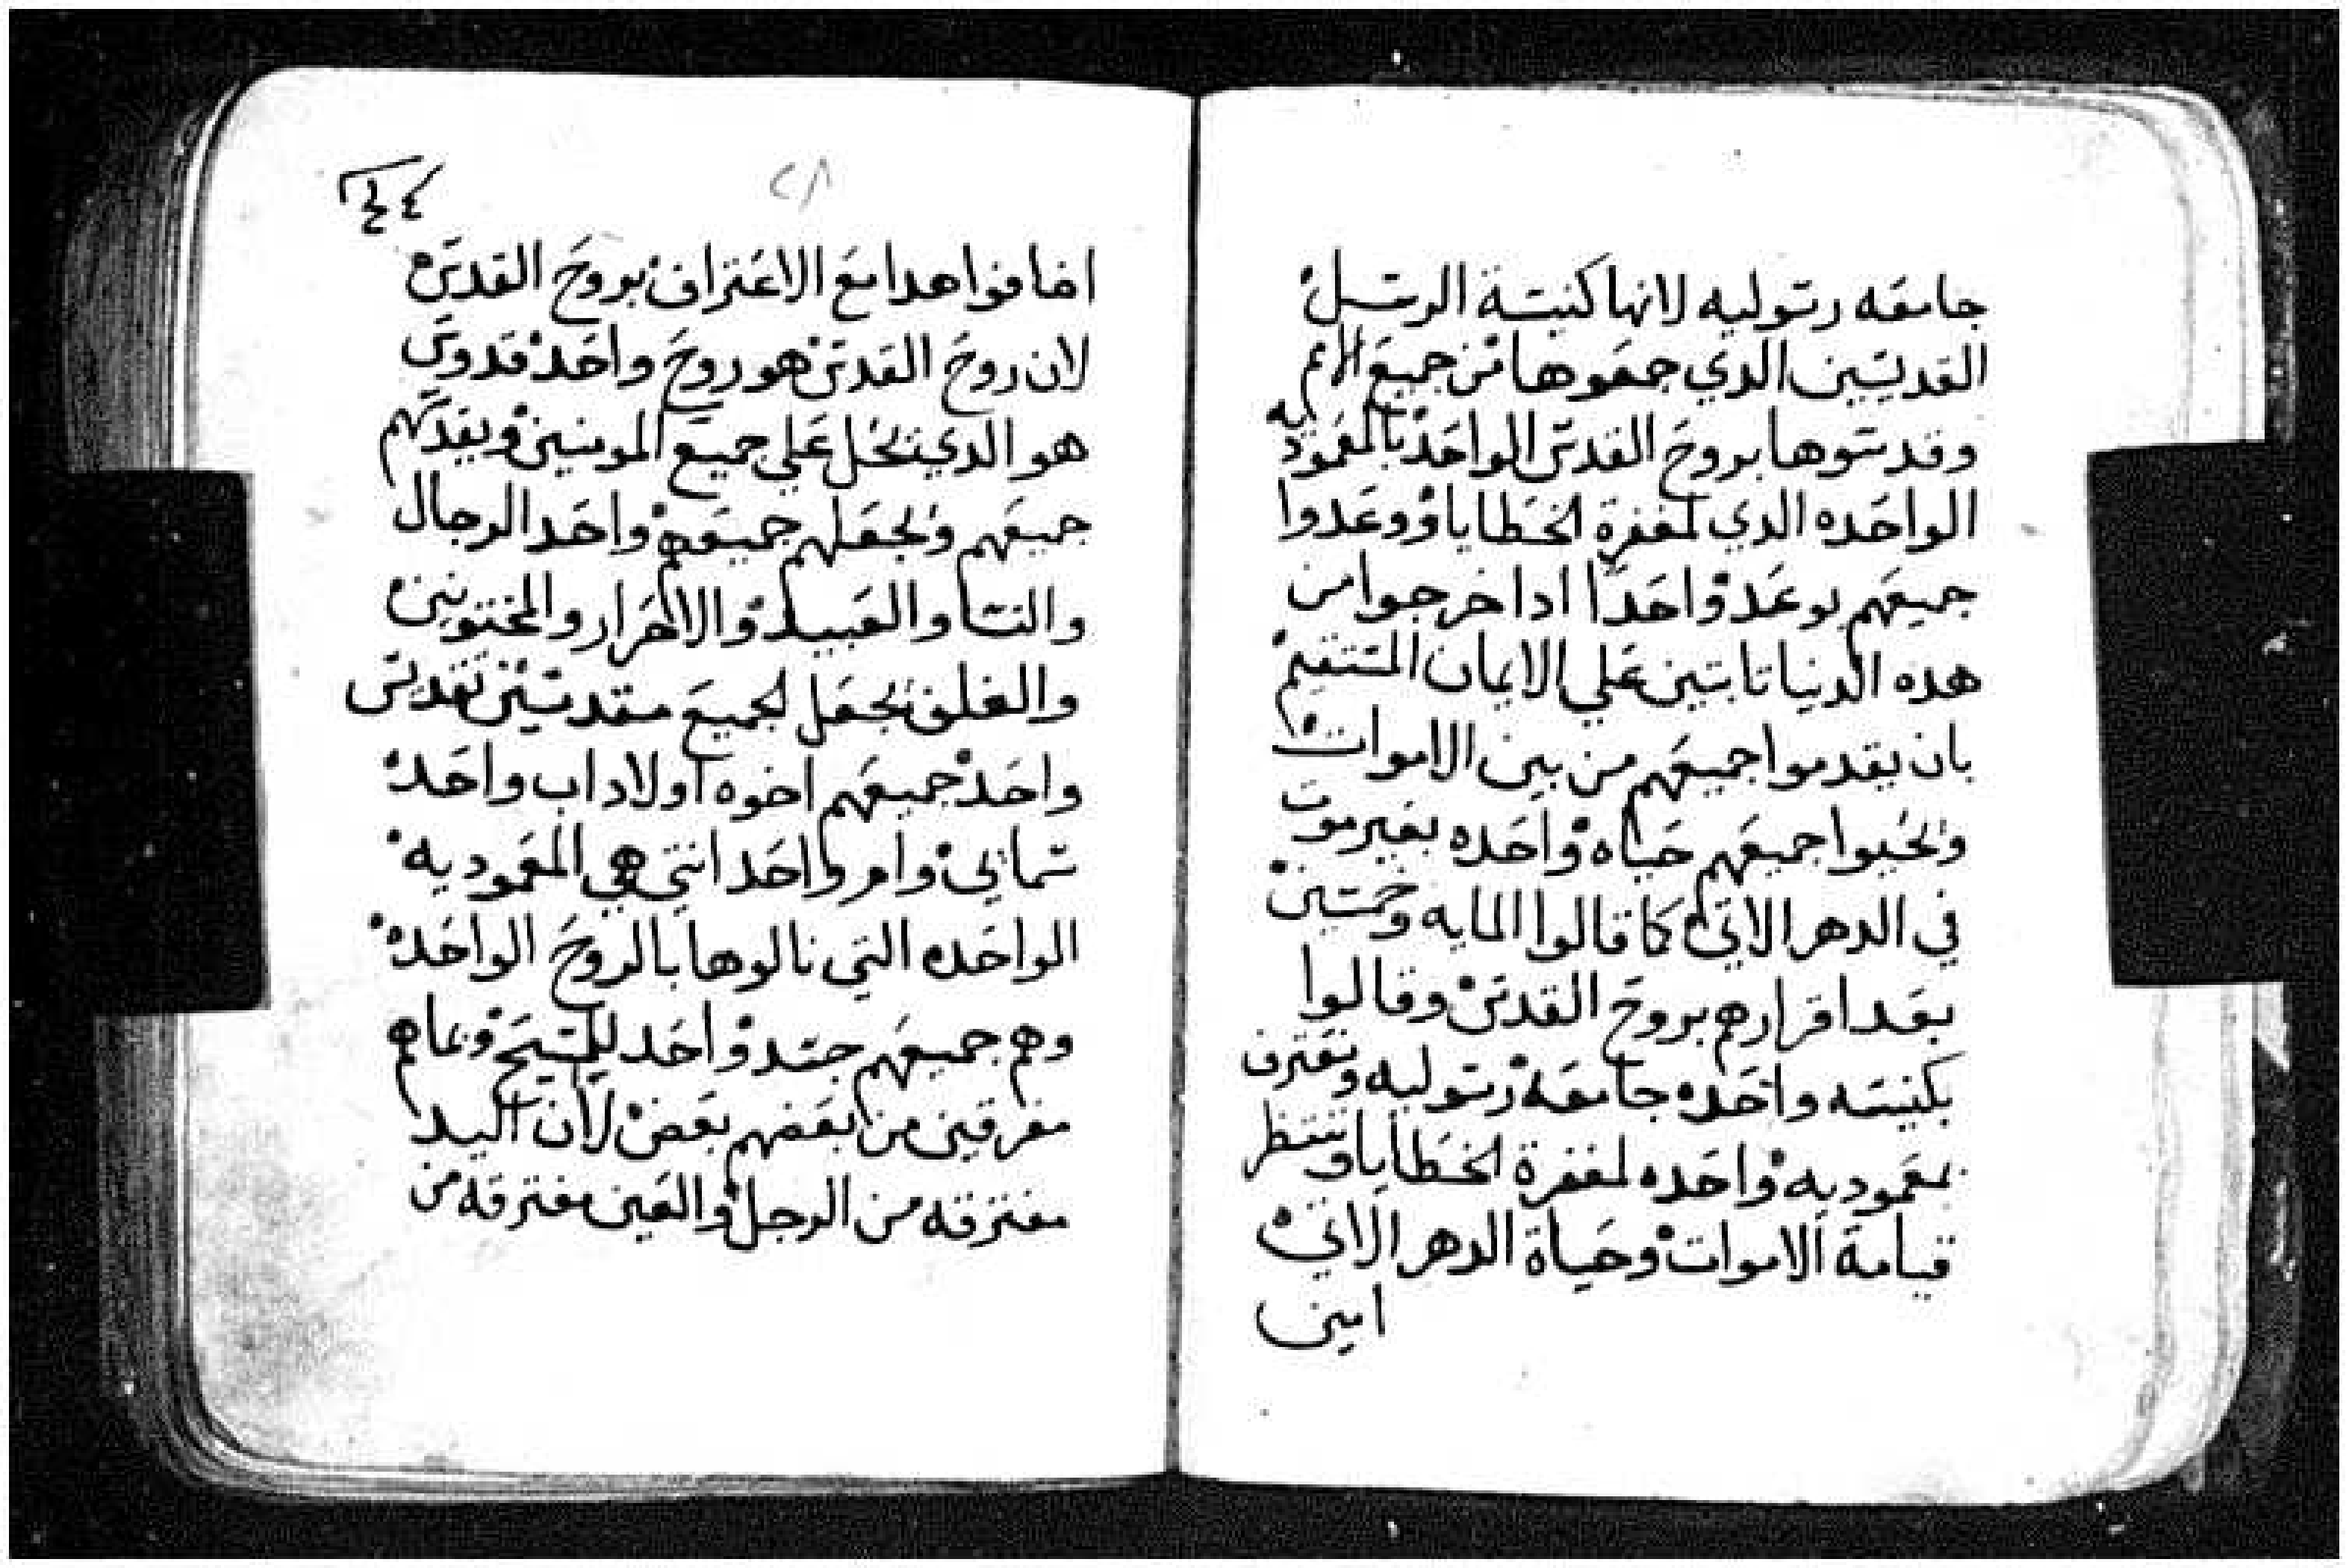 جامعه رسوليه لانها كنيسة الرسل
القديسين الدي جمعوها من جميع الامم
وقدسوها بروح القدس الواحد بالمعموديه
الواحده الدي لمغفرة الخطايا ووعدوا
جميعهم بوعد واحدا ادا خرجوا من
هده الدنيا تابتين علي الايمان المستقيم
بان يقدموا جميعهم من بين الاموات
ويحيوا جميعهم حياه واحده بغير موت
في الدهر الاتي كما قالوا المايه وخمسين
بعد اقرارهم بروح القدس وقالوا
بكنيسه واحده جامعه رسوليه ونعترف
بمعموديه واحده لمغفرة الخطايا وننتظر
قيامة الاموات وحياة الدهر الاتي
امين
٢٨
اضافوا هدا مع الاعتراف بروح القدس
لان روح القدس هو روح واحد قدوس
هو الدي يحل علي جميع المومنين ويقدسهم
جميعهم ويجعلهم جميعهم واحد الرجال
والنسا والعبيد والاحرار والمختونين
والغلف يجعل لجميع مقدسين تقديس
واحد جميعهم اخوه اولاد اب واحد
سماني وام واحد انتي هي المعموديه
الواحده التي نالوها بالروح الواحد
وهم جميعهم جسد واحد للمسيح وماهم
مفرقين من بعضهم بعض لان اليد
مفترقه من الرجل والعين مفترقه من